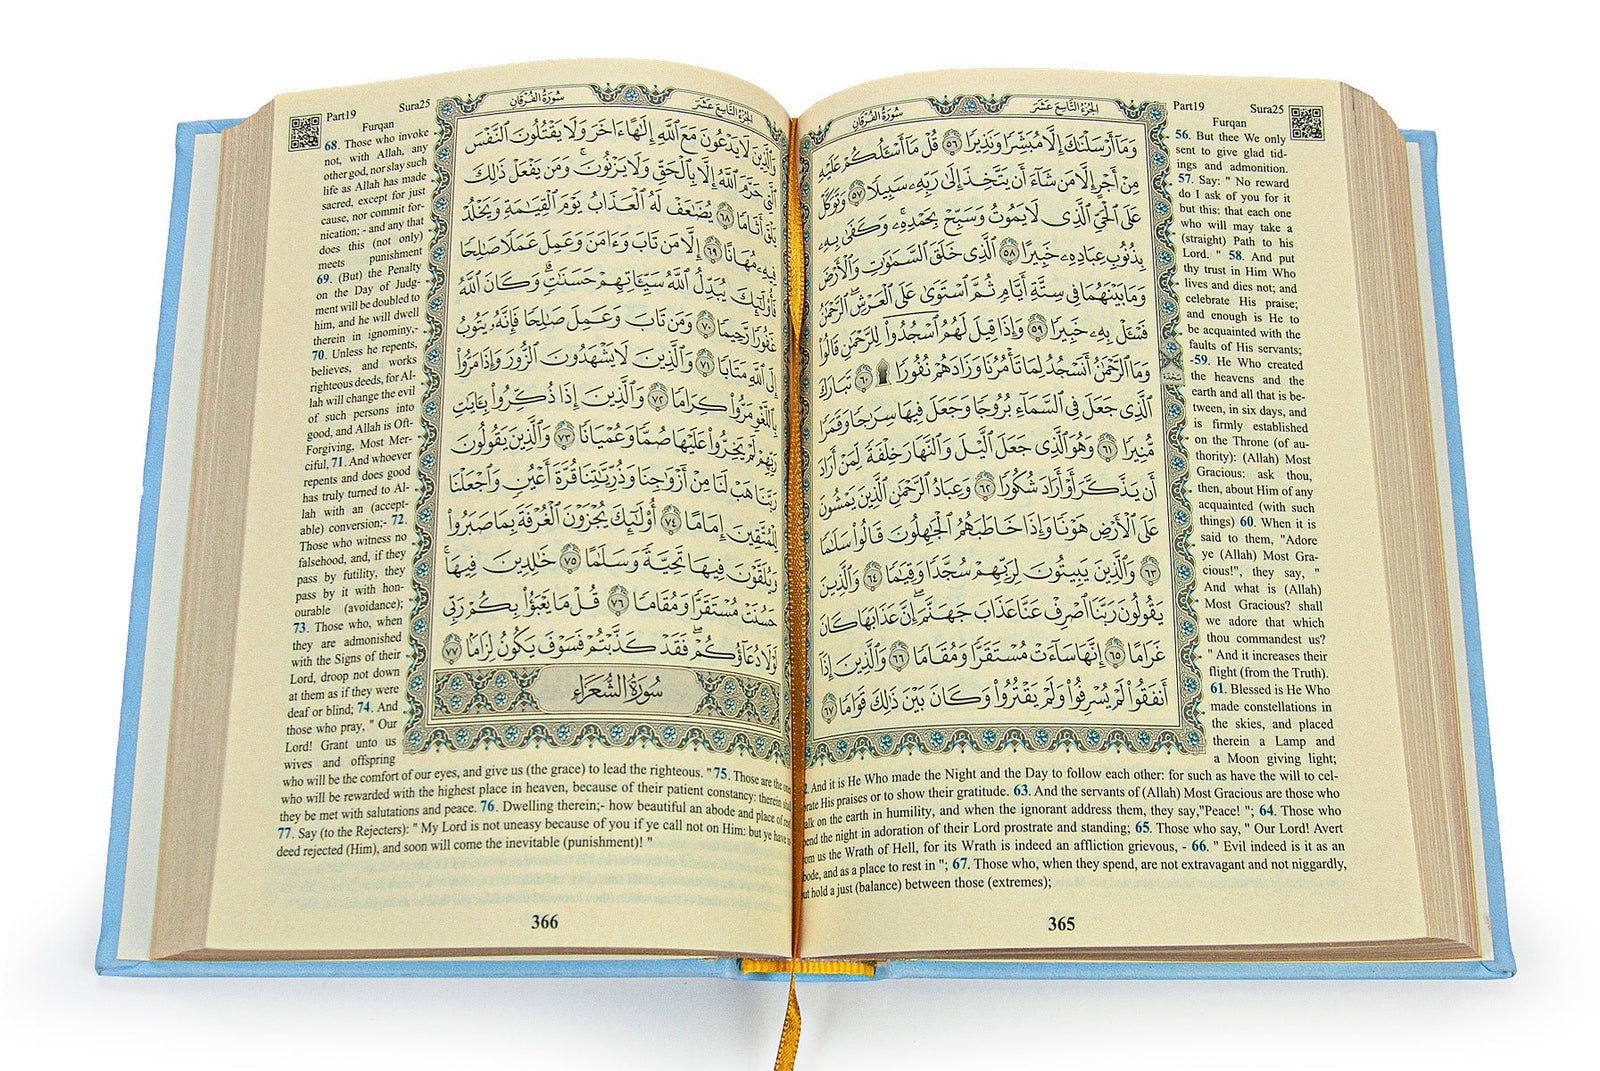 الجُزءُ التَّاسِعَ عَشَرَ سُورَةُ الفُرقَانِ
وَمَآ أَرۡسَلۡنَٰكَ إِلَّا مُبَشِّرٗا وَنَذِيرٗا ٥٦ قُلۡ مَآ أَسۡـَٔلُكُمۡ عَلَيۡهِ
مِنۡ أَجۡرٍ إِلَّا مَن شَآءَ أَن يَتَّخِذَ إِلَىٰ رَبِّهِۦ سَبِيلٗا ٥٧ وَتَوَكَّلۡ
عَلَى ٱلۡحَيِّ ٱلَّذِي لَا يَمُوتُ وَسَبِّحۡ بِحَمۡدِهِۦۚ وَكَفَىٰ بِهِۦ
بِذُنُوبِ عِبَادِهِۦ خَبِيرًا ٥٨ ٱلَّذِي خَلَقَ ٱلسَّمَٰوَٰتِ وَٱلۡأَرۡضَ
وَمَا بَيۡنَهُمَا فِي سِتَّةِ أَيَّامٖ ثُمَّ ٱسۡتَوَىٰ عَلَى ٱلۡعَرۡشِۖ ٱلرَّحۡمَٰنُ
فَسۡـَٔلۡ بِهِۦ خَبِيرٗا ٥٩ وَإِذَا قِيلَ لَهُمُ ٱسۡجُدُواْۤ لِلرَّحۡمَٰنِ قَالُواْ
وَمَا ٱلرَّحۡمَٰنُ أَنَسۡجُدُ لِمَا تَأۡمُرُنَا وَزَادَهُمۡ نُفُورٗا۩ ٦٠ تَبَارَكَ
ٱلَّذِي جَعَلَ فِي ٱلسَّمَآءِ بُرُوجٗا وَجَعَلَ فِيهَا سِرَٰجٗا وَقَمَرٗا
مُّنِيرٗا ٦١ وَهُوَ ٱلَّذِي جَعَلَ ٱلَّيۡلَ وَٱلنَّهَارَ خِلۡفَةٗ لِّمَنۡ أَرَادَ
أَن يَذَّكَّرَ أَوۡ أَرَادَ شُكُورٗا ٦٢ وَعِبَادُ ٱلرَّحۡمَٰنِ ٱلَّذِينَ يَمۡشُونَ
عَلَى ٱلۡأَرۡضِ هَوۡنٗا وَإِذَا خَاطَبَهُمُ ٱلۡجَٰهِلُونَ قَالُواْ سَلَٰمٗا
٦٣ وَٱلَّذِينَ يَبِيتُونَ لِرَبِّهِمۡ سُجَّدٗا وَقِيَٰمٗا ٦٤ وَٱلَّذِينَ
يَقُولُونَ رَبَّنَا ٱصۡرِفۡ عَنَّا عَذَابَ جَهَنَّمَۖ إِنَّ عَذَابَهَا كَانَ
غَرَامًا ٦٥ إِنَّهَا سَآءَتۡ مُسۡتَقَرّٗا وَمُقَامٗا ٦٦ وَٱلَّذِينَ إِذَآ
أَنفَقُواْ لَمۡ يُسۡرِفُواْ وَلَمۡ يَقۡتُرُواْ وَكَانَ بَيۡنَ ذَٰلِكَ قَوَامٗا ٦٧
سَجدة
Part19 Sura25
Furqan
56. But thee We only
sent to give glad tid-
ings and admonition.
57. Say: " No reward
do I ask of you for it
but this: that each one
who will may take a
(straight) Path to his
Lord. " 58. And put
thy trust in Him Who
lives and dies not; and
celebrate His praise;
and enough is He to
be acquainted with the
faults of His servants;
-59. He Who created
the heavens and the
earth and all that is be-
tween, in six days, and
is firmly established
on the Throne (of au-
thority): (Allah) Most
Gracious: ask thou,
then, about Him of any
acquainted (with such
things) 60. When it is
said to them, "Adore
ye (Allah) Most Gra-
cious!", they say, "
And what is (Allah)
Most Gracious? shall
we adore that which
thou commandest us?
" And it increases their
flight (from the Truth).
61. Blessed is He Who
made constellations in
the skies, and placed
therein a Lamp and
a Moon giving light;
And it is He Who made the Night and the Day to follow each other: for such as have the will to cel-
His praises or to show their gratitude. 63. And the servants of (Allah) Most Gracious are those who
on the earth in humility, and when the ignorant address them, they say,"Peace! "; 64. Those who
the night in adoration of their Lord prostrate and standing; 65. Those who say, " Our Lord! Avert
us the Wrath of Hell, for its Wrath is indeed an affliction grievous, - 66. " Evil indeed is it as an
and as a place to rest in "; 67. Those who, when they spend, are not extravagant and not niggardly,
hold a just (balance) between those (extremes);
365
الجُزءُ التَّاسِعَ عَشَرَ سُورَةُ الفُرقَانِ
وَٱلَّذِينَ لَا يَدۡعُونَ مَعَ ٱللَّهِ إِلَٰهًا ءَاخَرَ وَلَا يَقۡتُلُونَ ٱلنَّفۡسَ
ٱلَّتِي حَرَّمَ ٱللَّهُ إِلَّا بِٱلۡحَقِّ وَلَا يَزۡنُونَۚ وَمَن يَفۡعَلۡ ذَٰلِكَ
يَلۡقَ أَثَامٗا ٦٨ يُضَٰعَفۡ لَهُ ٱلۡعَذَابُ يَوۡمَ ٱلۡقِيَٰمَةِ وَيَخۡلُدۡ
فِيهِۦ مُهَانًا ٦٩ إِلَّا مَن تَابَ وَءَامَنَ وَعَمِلَ عَمَلٗا صَٰلِحٗا
فَأُوْلَٰٓئِكَ يُبَدِّلُ ٱللَّهُ سَيِّـَٔاتِهِمۡ حَسَنَٰتٖۗ وَكَانَ ٱللَّهُ
غَفُورٗا رَّحِيمٗا ٧٠ وَمَن تَابَ وَعَمِلَ صَٰلِحٗا فَإِنَّهُۥ يَتُوبُ
إِلَى ٱللَّهِ مَتَابٗا ٧١ وَٱلَّذِينَ لَا يَشۡهَدُونَ ٱلزُّورَ وَإِذَا مَرُّواْ
بِٱللَّغۡوِ مَرُّواْ كِرَامٗا ٧٢ وَٱلَّذِينَ إِذَا ذُكِّرُواْ بِـَٔايَٰتِ
رَبِّهِمۡ لَمۡ يَخِرُّواْ عَلَيۡهَا صُمّٗا وَعُمۡيَانٗا ٧٣ وَٱلَّذِينَ يَقُولُونَ
رَبَّنَا هَبۡ لَنَا مِنۡ أَزۡوَٰجِنَا وَذُرِّيَّٰتِنَا قُرَّةَ أَعۡيُنٖ وَٱجۡعَلۡنَا
لِلۡمُتَّقِينَ إِمَامًا ٧٤ أُوْلَٰٓئِكَ يُجۡزَوۡنَ ٱلۡغُرۡفَةَ بِمَا صَبَرُواْ
وَيُلَقَّوۡنَ فِيهَا تَحِيَّةٗ وَسَلَٰمًا ٧٥ خَٰلِدِينَ فِيهَاۚ
حَسُنَتۡ مُسۡتَقَرّٗا وَمُقَامٗا ٧٦ قُلۡ مَا يَعۡبَؤُاْ بِكُمۡ رَبِّي
لَوۡلَا دُعَآؤُكُمۡۖ فَقَدۡ كَذَّبۡتُمۡ فَسَوۡفَ يَكُونُ لِزَامَۢا ٧٧
سُورَةُ الشُّعَرَاءِ
Part19 Sura25
Furqan
68. Those who invoke
not, with Allah, any
other god, nor slay such
life as Allah has made
sacred, except for just
cause, nor commit for-
nication; - and any that
does this (not only)
meets punishment
69. (But) the Penalty
on the Day of Judg-
ment will be doubled to
him, and he will dwell
therein in ignominy,-
70. Unless he repents,
believes, and works
righteous deeds, for Al-
lah will change the evil
of such persons into
good, and Allah is Oft-
Forgiving, Most Mer-
ciful, 71. And whoever
repents and does good
has truly turned to Al-
lah with an (accept-
able) conversion;- 72.
Those who witness no
falsehood, and, if they
pass by futility, they
pass by it with hon-
ourable (avoidance);
73. Those who, when
they are admonished
with the Signs of their
Lord, droop not down
at them as if they were
deaf or blind; 74. And
those who pray, " Our
Lord! Grant unto us
wives and offspring
who will be the comfort of our eyes, and give us (the grace) to lead the righteous. " 75. Those are the
who will be rewarded with the highest place in heaven, because of their patient constancy: therein
they be met with salutations and peace. 76. Dwelling therein;- how beautiful an abode and place of
77. Say (to the Rejecters): " My Lord is not uneasy because of you if ye call not on Him: but ye have
deed rejected (Him), and soon will come the inevitable (punishment)! "
366